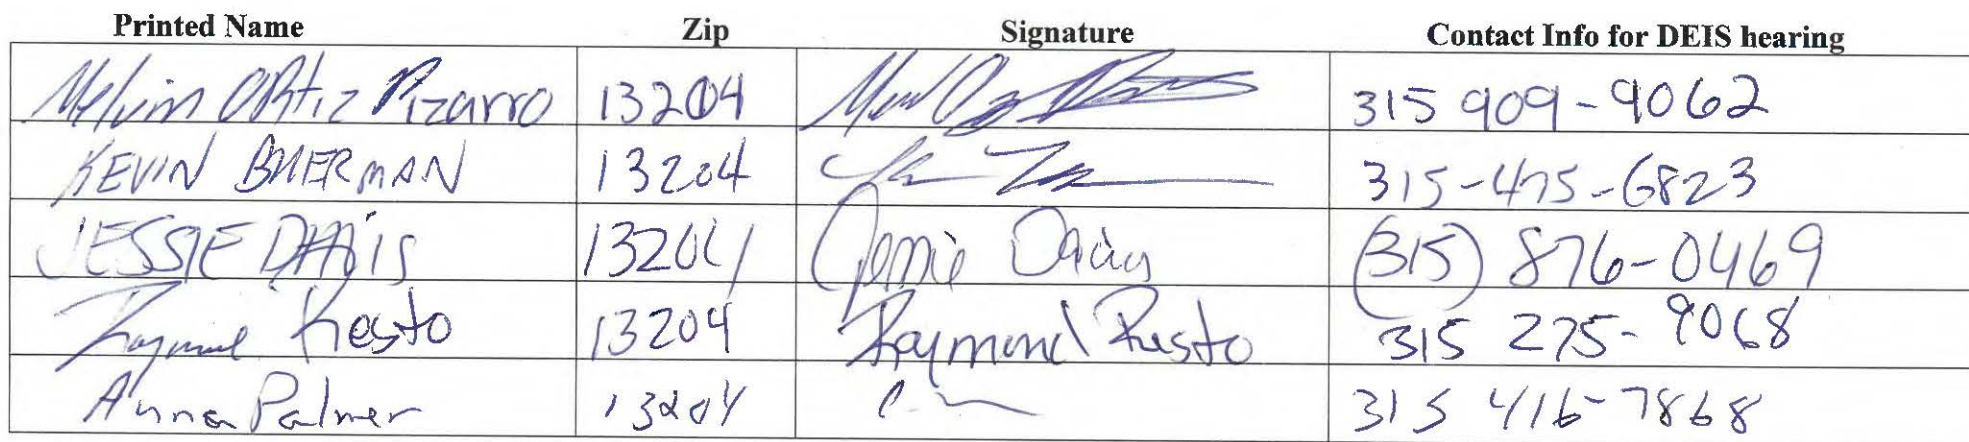 Printed Name Zip Signature Contact Info for DEIS hearing
Melvin ORtiz Pizarro 13204 315 909-9062
KEVIN 13204 315-475-6823
JESSIE DAVIS 13204 Jessie Davis (315) 876-0469
Raymond Resto 13204 Raymond Resto 315 275-9068
Anna Palmer 13204 315 416-7868